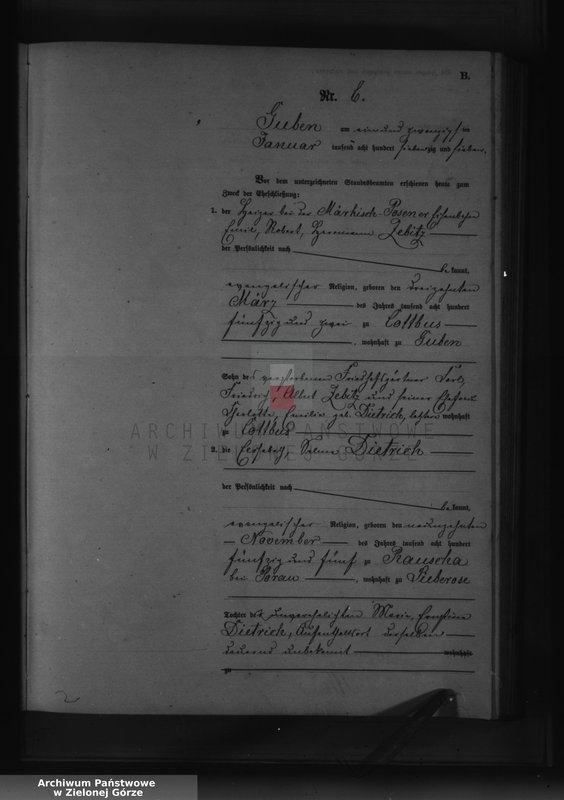 B.
Nr. 6.
Guben am ein und zwanzigsten
Januar tausend acht hundert siebenzig und sieben.
Vor dem unterzeichneten Standesbeamten erschienen heute zum
Zweck der Eheschließung:
1. der Heizer bei der Märkisch-Posener Eisenbahn
Emil, Robert, Herrmann Zebitz
der Persönlichkeit nach
bekannt,
evangelischer Religion, geboren den dreizehnten
März des Jahres tausend acht hundert
fünfzig und zwei zu Cottbus
, wohnhaft zu Guben
Sohn des verstorbenen Friedhofsgärtner Carl,
Friedrich, Albert Zebitz und seiner Ehefrau
Charlotte, Emilie geb. Dietrich, letztere wohnhaft
zu Cottbus
ARCHIWUM PAŃSTWOWE
W ZIELONEJ GÓRZE
2. die Selma Dietrich
der Persönlichkeit nach
bekannt,
evangelischer Religion, geboren den neunzehnten
November des Jahres tausend acht hundert
fünfzig und fünf zu Rauscha
bei Sorau, wohnhaft zu Lieberose
Tochter der unverehelichten Marie, Ernstine
Dietrich, Aufenthaltsort derselben
dauernd unbekannt wohnhaft
zu
Archiwum Państwowe
w Zielonej Górze